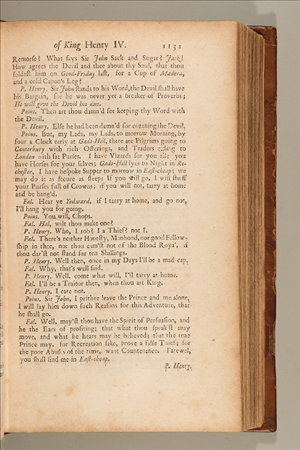 of King Henry IV. 1151
Remorse? What says Sir John Sack and Sugar? Jack!
How agrees the Devil and thee about thy Soul, that thou
soldest him on Good-Friday last, for a Cup of Madera,
and a cold Capon's Leg?
P. Henry. Sir John stands to his Word, the Devil shall have
his Bargain, for he was never yet a breaker of Proverbs;
He will give the Devil his due.
Poins. Then art thou damn'd for keeping thy Word with
the Devil.
P. Henry. Else he had been damn'd for cozening the Devil.
Poins. But, my Lads, my Lads, to morrow Morning, by
four a Clock early at Gads-Hill, there are Pilgrims going to
Canterbury with rich Offerings, and Traders riding to
London with fat Purses. I have Vizards for you all; you
have Horses for your selves; Gads-Hill lyes to Night in Ro-
chester, I have bespoke Supper to morrow in East-cheap; we
may do it as secure as sleep: If you will go, I will stuff
your Purses full of Crowns; if you will not, tarry at home
and be hang'd.
Fal. Hear ye Yedward, if I tarry at home, and go not,
I'll hang you for going.
Poins. You will, Chops.
Fal. Hal, wilt thou make one?
P. Henry. Who, I rob? I a Thief? not I.
Fal. There's neither Honesty, Manhood, nor good Fellow-
ship in thee, nor thou cam'st not of the Blood Royal, if
thou dar'st not stand for ten Shillings.
P. Henry. Well then, once in my Days I'll be a mad cap.
Fal. Why, that's well said.
P. Henry. Well, come what will, I'll tarry at home.
Fal. I'll be a Traitor then, when thou art King.
P. Henry. I care not.
Poins. Sir John, I prithee leave the Prince and me alone,
I will lay him down such Reasons for this Adventure, that
he shall go.
Fal. Well, may'st thou have the Spirit of Perswasion, and
he the Ears of profiting; that what thou speak'st may
move, and what he hears may be believed; that the true
Prince may, for Recreation sake, prove a false Thief; for
the poor Abuses of the time, want Countenance. Farewel,
you shall find me in East-cheap.
P. Henry.